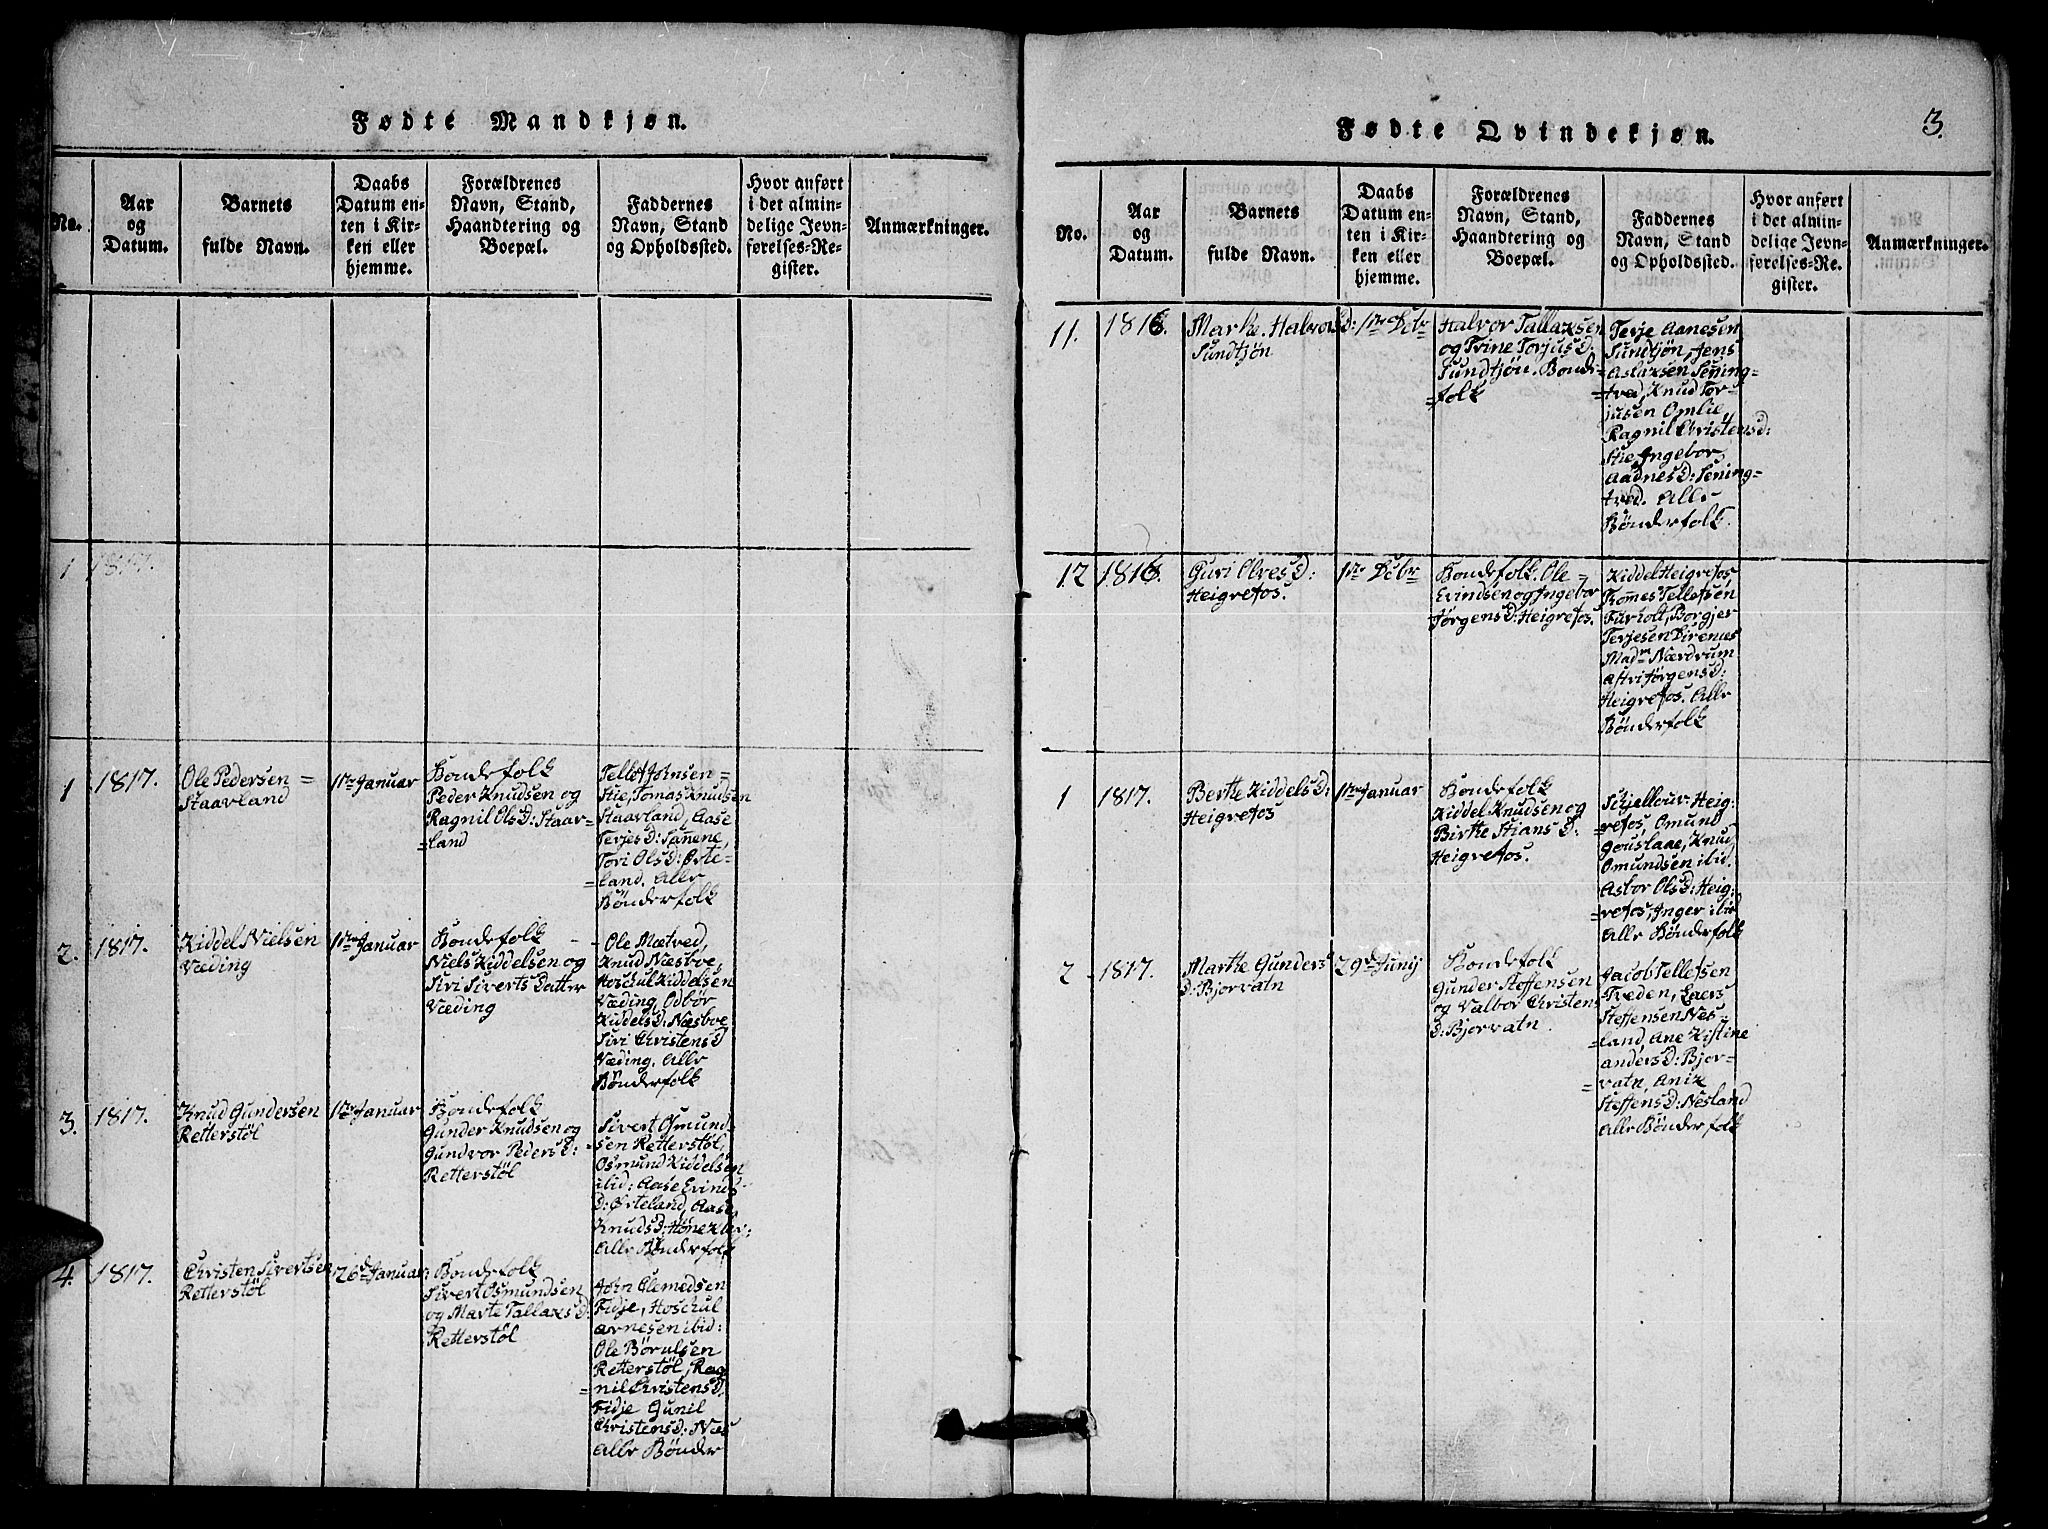 Fødte Mandkjøn.
No.
Aar
og
Datum.
Barnets
fulde Navn.
Daabs
Datum en-
ten i Kir-
ken eller
hjemme.
Forældrenes
Navn, Stand,
Haandtering og
Boepæl.
Faddernes
Navn, Stand
og Opholdssted.
Hvor anført
i det almin-
delige Jevn-
førelses-Re-
gister.
Anmærkninger.
1 1817.
1 1817.
Ole Pedersen =
Staarland
1ste Januar
Bondefolk
Peder Knudsen og
Ragnil Ols D: Staar-
=land
Tellef Johnsen =
Stie, Tomas Knudsen
Staarland, Aase
Terjes D: Sannene,
Tori Ols D: Ørte-
=land. Alle
Bönderfolk
2. 1817.
Kiddel Nielsen
Væding
1ste Januar
Bondefolk
Niels Kiddelsen og
Siri Siverts Datter
Væding
Ole Mætved,
Knud Næsboe,
Hoschul Kiddelsen
Væding, Odbör
Kiddels D: Næsboe
Siri Christens D
Væding. Alle
Bönderfolk
3. 1817.
Knud Gundersen
Retterstöl
1ste Januar
Bondefolk
Gunder Knudsen og
Gundvor Peders D:
Retterstöl
Sivert Osmund-
sen Retterstöl,
Osmund Kiddelsen
ibid: Aase Evinds
D: Örteland, Aase
Knuds D: Hönekler:
Alle Bönderfolk
4. 1817.
Christen Sivertsen
Retterstöl
26de Januar:
Bondefolk
Sivert Osmundsen
og Marte Tallaxs D:
Retterstöl
John Clemedsen
Fidje, Hoschul
Arnesen ibid:
Ole Börulsen
Retterstöl, Rag
=nil Christens D
Fidje Gunil
Christens D: Næs
Alle Bönder
Fødte Qvindekjøn.
3.
No.
Aar
og
Datum.
Barnets
fulde Navn.
Daabs
Datum en-
ten i Kir-
ken eller
hjemme.
Forældrenes
Navn, Stand,
Haandtering og
Boepæl.
Faddernes
Navn, Stand
og Opholdssted.
Hvor anført
i det almin-
delige Jevn-
førelses-Re-
gister.
Anmærkninger.
11. 1816.
Marthe Halvors D:
Sundtjön
1ste Debr
Halvor Tallaxsen
og Trine Torjus D:
Sundtjön. Bonde-
=folk
Terje Aanesen
Sundtjön, Jens
Aslaxsen Sening-
=tved, Knud Tor-
jusen Omlie,
Ragnil Christens D:
Stie, Ingebor
Aadnes D: Sening-
tved. Alle
Bönderfolk.
12 1816.
Guri Olves D:
Heigrefos.
1ste Debr
Bondefolk. Ole =
Evindsen og Ingebor
Jörgens D: Heigrefos.
Kiddel Heigrefos
Tomes Tellefsen
Furholt, Borgjer
Terjesen Birenes
Madm Nærdrum
Astri Jörgens D:
Heigrefos. Alle
Bönderfolk
1 1817.
Berthe Kiddels D:
Heigrefos
1ste Januar
Bondefolk
Kiddel Knudsen og
Birthe Stians D:
Heigrefos.
Schjellour Heig:
=refos, Omund
Gouslaae, Knud
Omundsen ibid.
Asbor Ols D: Heig:
=refos, Inger ibid
Alle Bönderfolk
2 1817.
Marthe Gunders
D: Bjorvatn
29de Junij
Bondefolk
Gunder Stoffensen
og Valbor Christens
D: Bjorvatn.
Jacob Tellefsen
Tveden, Laers
Steffensen Nes-
=land, Ane Kistine
Anders D: Bjor-
=vatn, Aniz
Steffens D: Nesland
Alle Bönderfolk